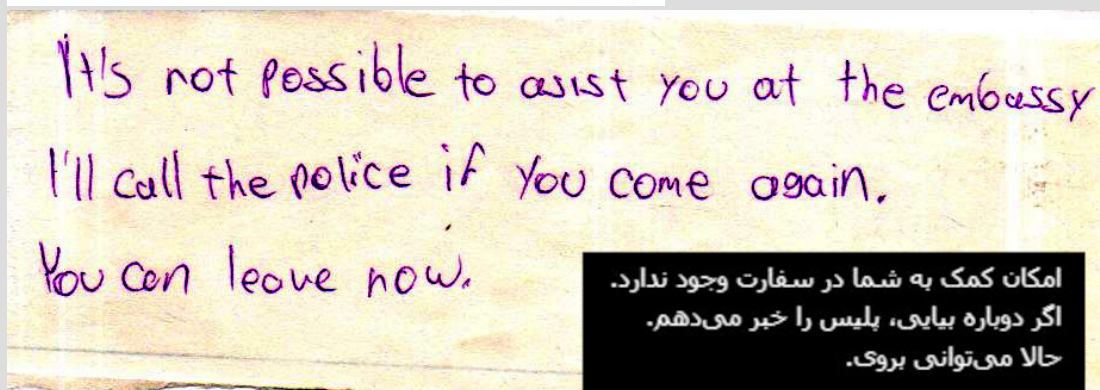 It's not possible to asist you at the embassy
I'll call the police if you come again.
You can leave now.
امکان کمک به شما در سفارت وجود ندارد.
اگر دوباره بیایی، پلیس را خبر می‌دهم.
حالا می‌توانی بروی.